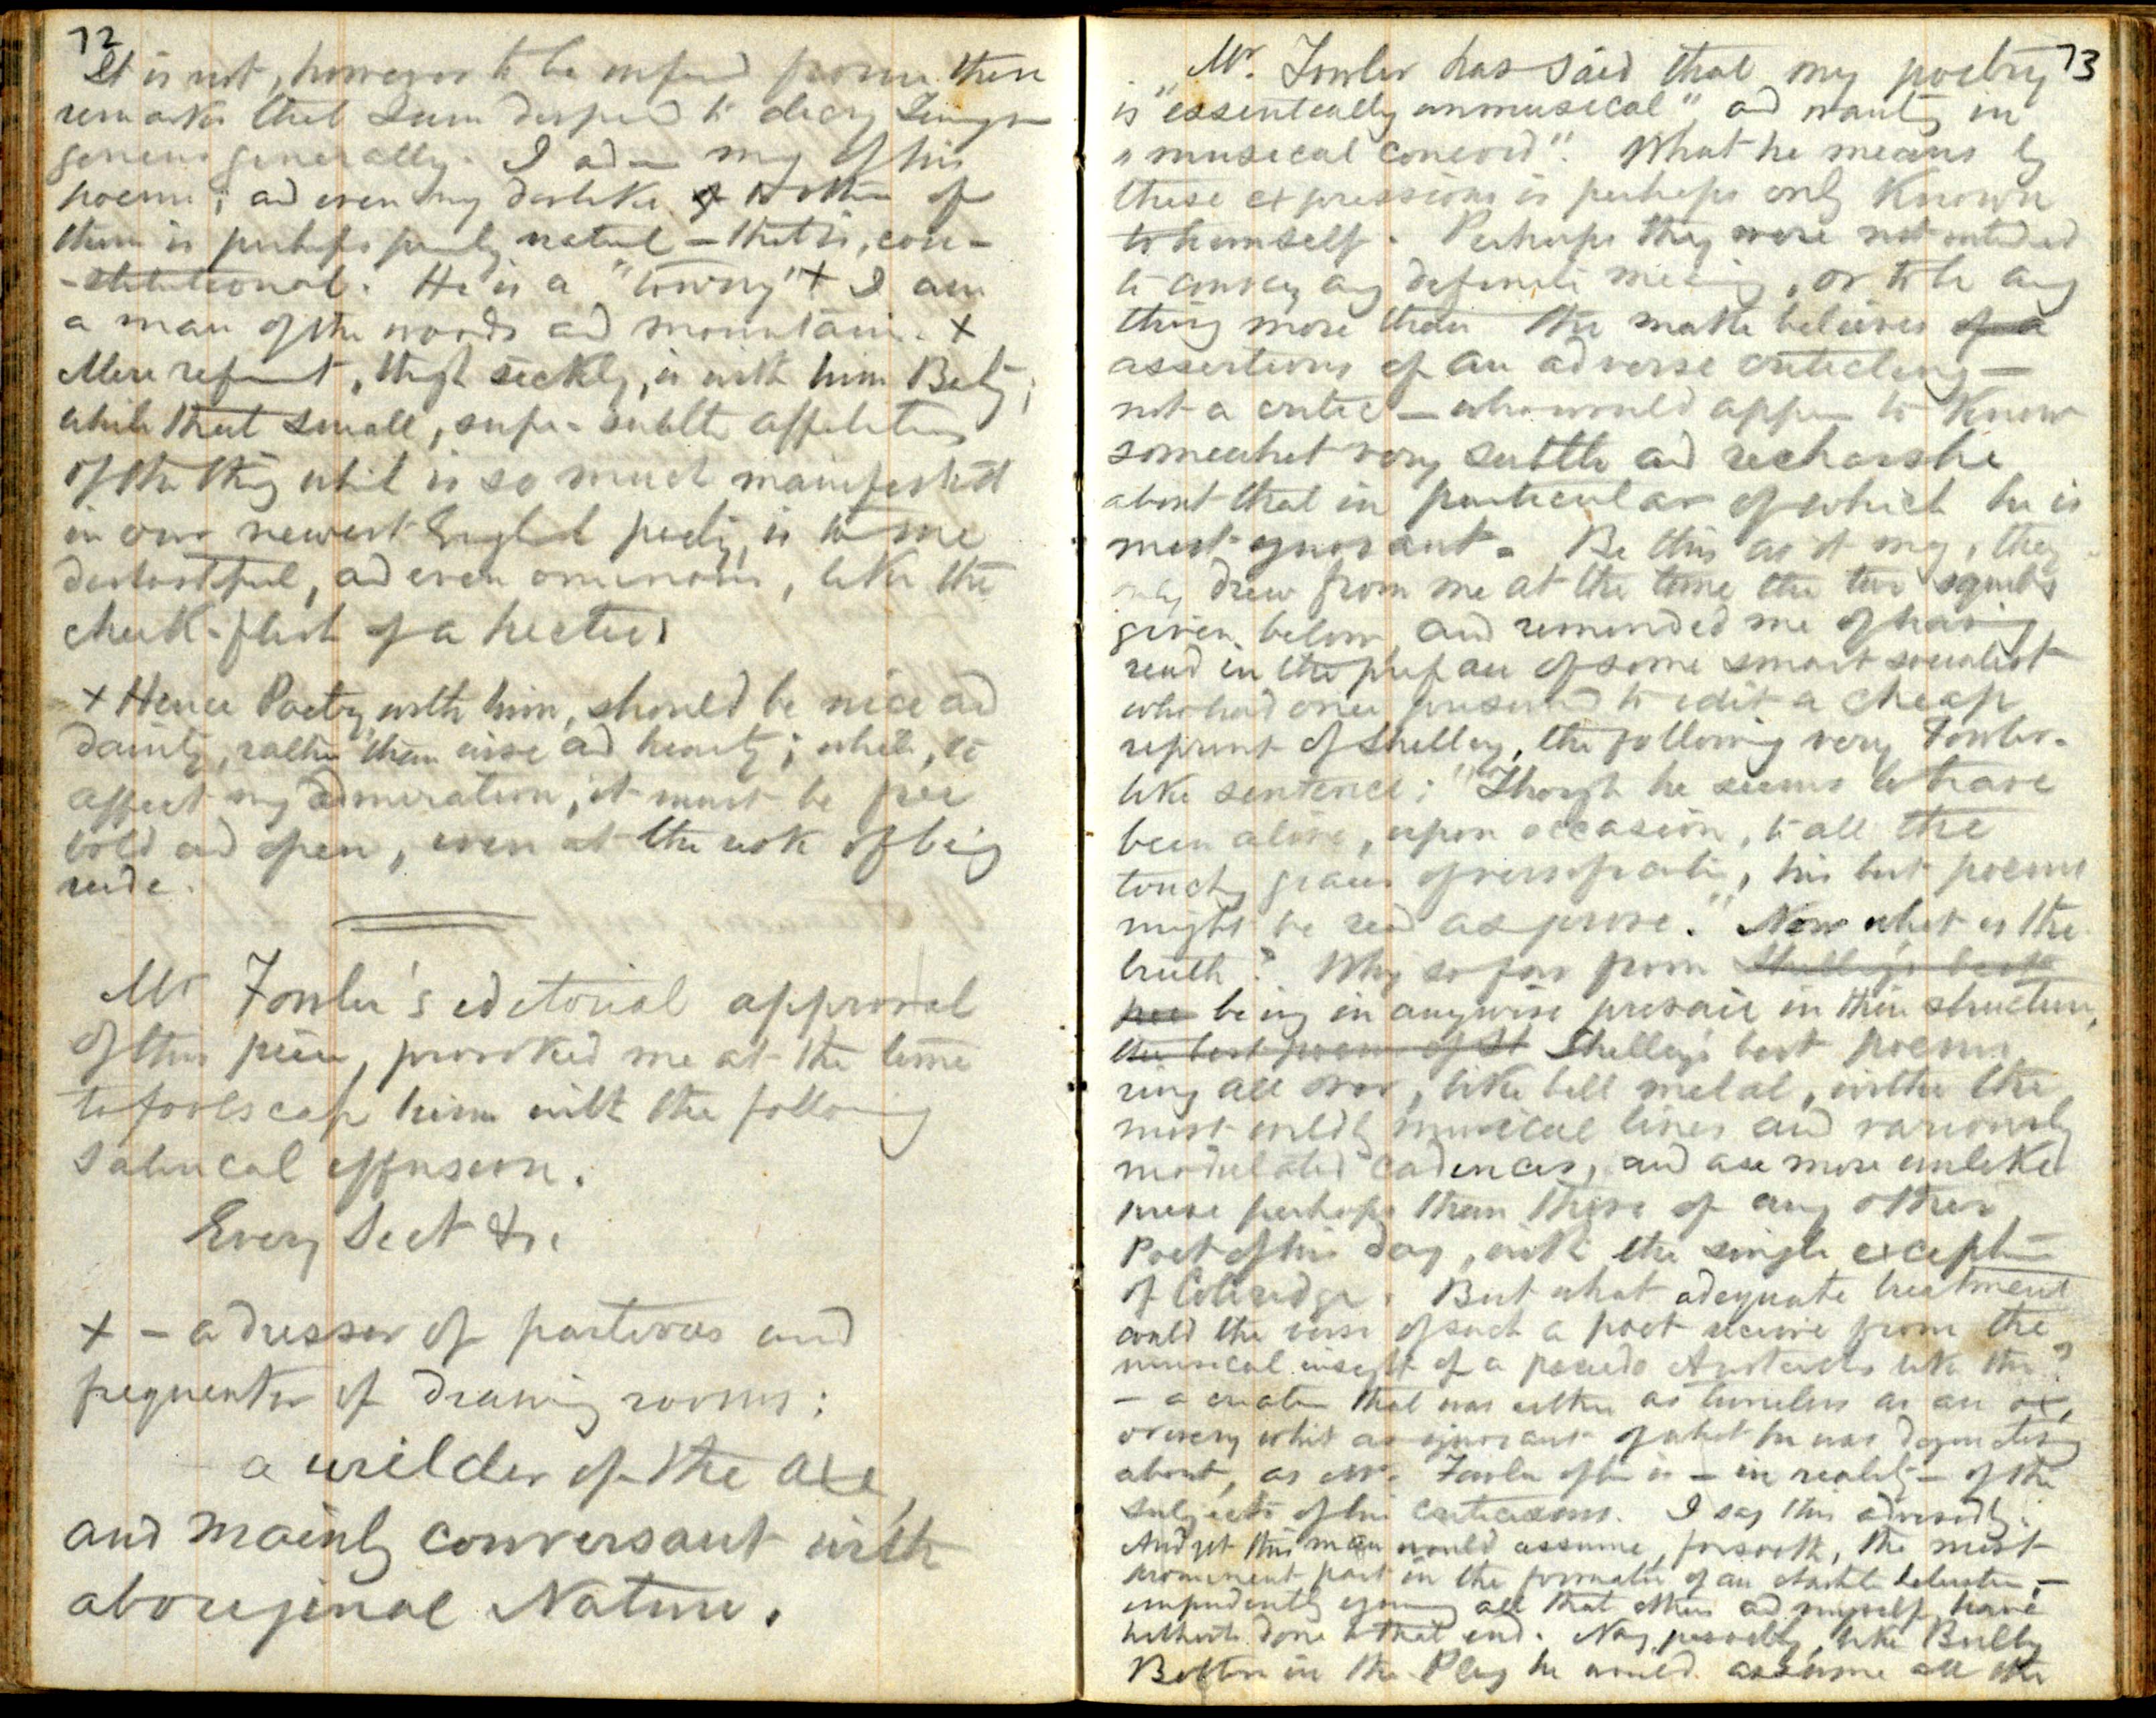 72
It is not, however to be infered from these
remarks that I am disposed to decry Tennyson
genius generally. I adm my of his
poems; ad even my dislike to others of
them is perhaps partly natural – that is, con-
-stitutional. He is a "towny" + I am
a man of the woods ad mountains. +
Mere refinement, though sickly, is with him Beauty;
while that small, super-subtle affectation
of the thing which is so much manifested
in our newest English poetry, is to me
distasteful, ad even ominous, like the
cheek-flush of a hectic.
+ Hence Poetry with him, should be nice ad
dainty, rather than wise ad hearty; while, to
affect my admiration, it must be free
bold ad open, even at the risk of being
rude.
Mr Fowler's editorial approval
of this piece, provoked me at the time
to foolscap him with the following
satirical effusion.
Every Sect &c.
+ – a dresser of parterres and
frequenter of drawing rooms:
a wielder of the axe,
and mainly conversant with
aboriginal Nature.
73
Mr. Fowler has said that my poetry
is "essentially unmusical", ad wanting in
"musical concord". What he means by
these expressions is perhaps only known
to himself. Perhaps they were not intended
to convey any definite meaning, or to be any
thing more than the make believes of a
assertions of an adverse criticling –
not a critic – who would appear to know
somewhat very subtle and recharshe
about that in particular of which he is
most ignorant. Be this as it may, they
only drew from me at the time the two squibs
given below, and reminded me of having
read in the preface of some smart socialist
who had once presumed to edit a cheap
reprint of Shelley, the following very Fowler-
like sentence: "Though he seems to have
been alive, upon occasion, to all the
touchy graces of versification, his best poems
might be read as prose." Now what is the
truth? Why so far from Shelley's best
poe being in anywise prosaic in their structure,
the best poems of Sh Shelley's best poems
ring all over, like bell metal, with the
most wildly musical lines and variously
modulated cadences, and are more unlike
prose perhaps than those of any other
Poet of his day, with the single exception
of Coleridge. But what adequate treatment
could the verse of such a poet receive from the
musical insight of a pseudo Aristarchus like this?
– a creature that was either as tuneless as an ox,
or every whit as ignorant of what he was dogmatising
about, as Mr. Fowler often is – in reality – of the
subjects of his criticisms. I say this advisedly.
And yet this man would assume, forsooth, the most
prominent part in the formation of an literature, –
impudently ignoring all that others ad myself have
hitherto done to that end. Nay, possibly, like Bully
Bottom in the Play he would assume all the